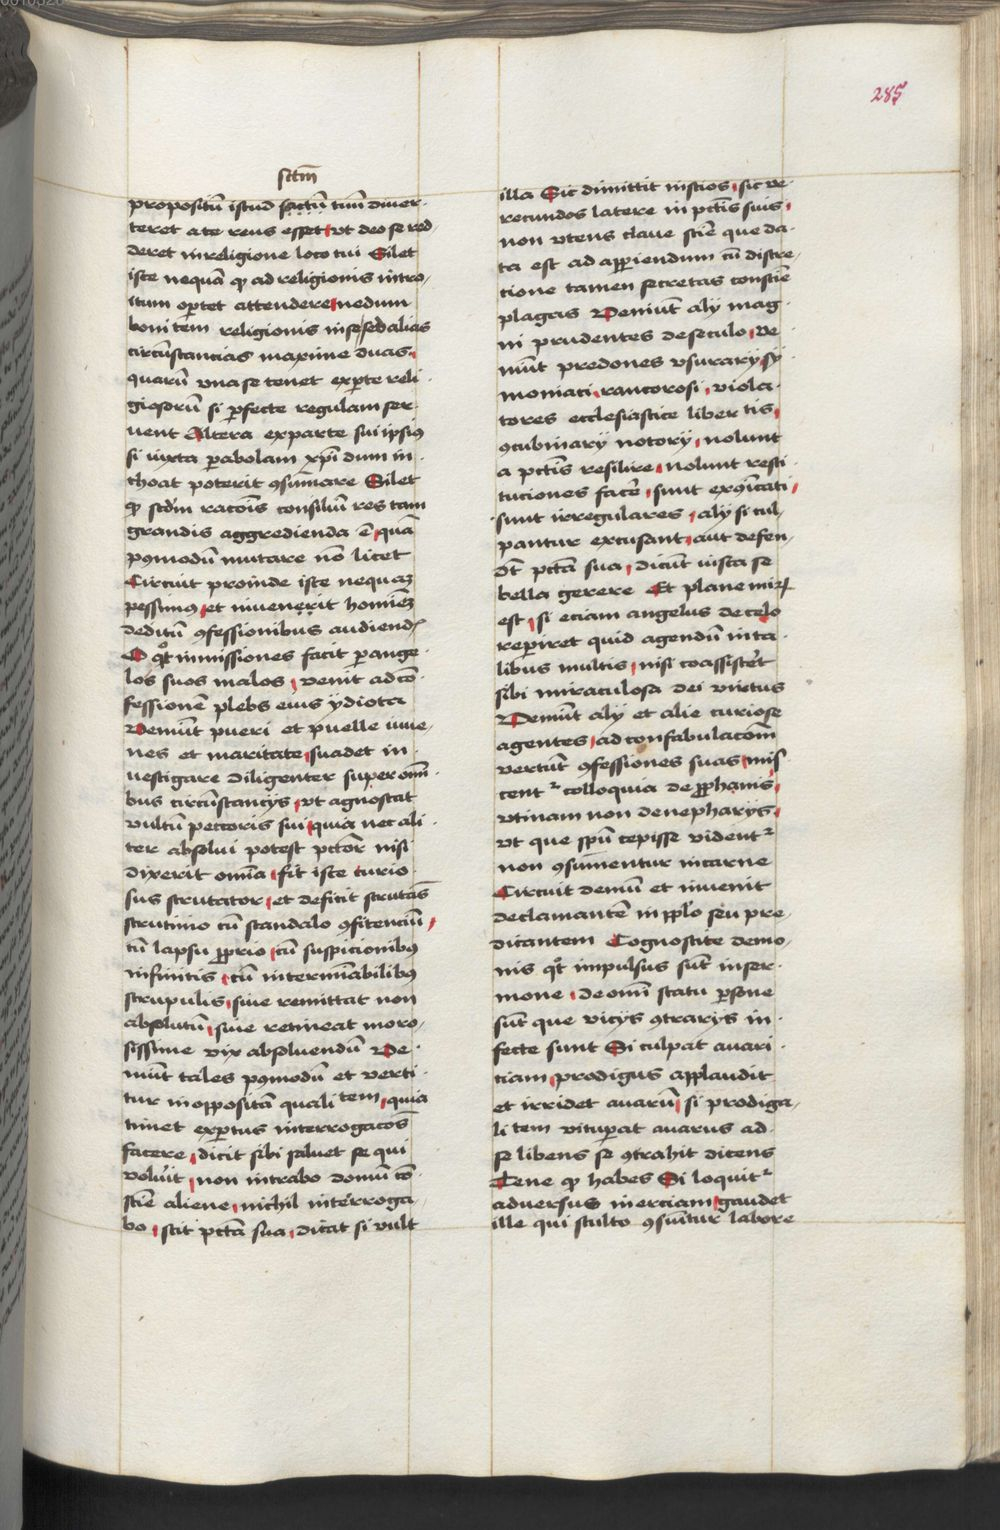 285
sctm̄
propositū istud factū tuū diuer-
teret a te reus esset vt deo se red-
deret in religione loco tui Silet
iste nequā qͥ ad religionis intro-
itum oportet attendere nedum
boni tem religionis in se sed alias
circūstancias maxime duas
quarū vna se tenet ex parte reli-
giosorū si perfecte regulam ser-
uent Altera ex parte sui ipsiꝰ
si iuxta parabolam xpī dum in-
choat poterit ꝯsūmare Silet
ꝙ scdm̄ racōis consiliū res tam
grandis aggredienda ē quā
pꝰmodū mutare nō licet
Circuit proinde iste nequaꝫ
pessimꝰ et inuenerit hominēꝫ
deditū ꝯfessionibus audiend
inmissiones facit per ange-
los suos malos venit ad cō-
fessionē plebs eius ydiota
Veniūt pueri et puelle iuue-
nes et maritate suadet in-
uestigare diligenter super omī-
bus circūstancijs vt agnoscat
vultū peccoris sui quia nec ali-
ter absolui potest pctōr nisi
dixerit omīa fit iste curio-
sus scrutator et deficit scrutās
scrutinio cū scandalo ꝯfitenciū
cū lapsu ꝓprio cū suspicionibꝰ
infinitis cū interminabilibꝰ
scrupulis siue remittat non
absolutū siue retineat moro-
sissime vix absoluendū Ve-
niūt tales pꝰmodū et verti-
tur in oppositā quali tem quia
timet expertus interrogacōs
facere dicit sibi saluet se qui
voluīt non intrabo domū cō-
sciē aliene nichil interroga-
bo scit pctā sua dicat si vult
illa Sic dimittit inscios sic ve-
recundos latere in pctīs suis
non vtens claue sciē que da-
ta est ad apperiendum cū discre-
cione tamen secretas consciē
plagas Veniūt alij mag-
ni prudentes de seculo ve-
niūt predones vsurarij sy-
moniaci rancorosi viola-
tores ecclesiastice liber tis
ꝯcubinarij notorij nolunt
a pctīs resilire nolunt resti-
tuciones facē sunt exꝯīcati
sunt irregulares alij si cul-
pantur excusant aut defen-
dt̄ pctā sua dicūt iusta se
bella gerere Et plane mirꝫ
est si eciam angelus de celo
reperiret quid agendū in ta-
libus multis nisi coassistet
sibi miraculosa dei virtus
Veniūt alij et alie curiose
agentes ad confabulacōm
vertūt ꝯfessiones suas mis
cent᷑ colloquia de ꝓphanis
vtinam non de nepharijs
vt que spū cepisse vident᷑
non ꝯsumentur in carne
Circuit demū et inuenit
declamantē in pplo seu pre-
dicantem Cognoscite demo-
nis qͬ impulsus sūt in ser-
mone de omī statu persone
sūt que vicijs ꝯtrarijs in-
fecte sunt Si culpat auari-
ciam prodigus applaudit
et irridet auarū si prodiga-
li tem vituperat auarus ad
se libens se ꝯtrahit dicens
Tene ꝙ habes Si loquit᷑
aduersus inerciam gaudet
ille qui stulto ꝯsūitur labore